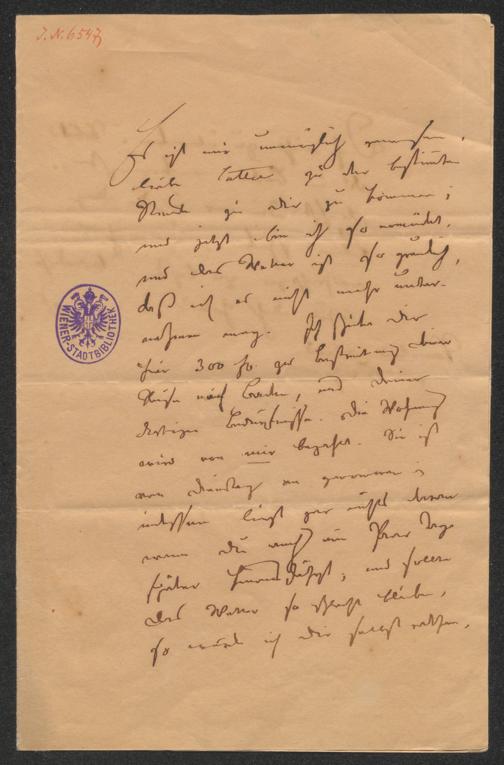 J. N. 6547
WIENER-STADTBIBLIOTHEK
Es ist mir unmöglich gewesen,
liebe Bettine zu der bestimten
Stunde zu dir zu kommen;
und jetzt bin ich so ermüdet,
und das Wetter ist so gräulich,
daß ich es nicht mehr unter-
nehmen mag. Ich schicke dir
hier 300 fl zur Bestreitung deiner
Reise nach Baden, und deiner
dortigen Bedürfnisse. Die Wohnung
wird von mir bezahlt. Sie ist
von Dienstag an genommen;
indessen liegt gar nichts daran
wenn du auch ein Paar Tage
später hinausziehst; und sollte
das Wetter so schlecht bleiben,
so würde ich dir selbst rathen,